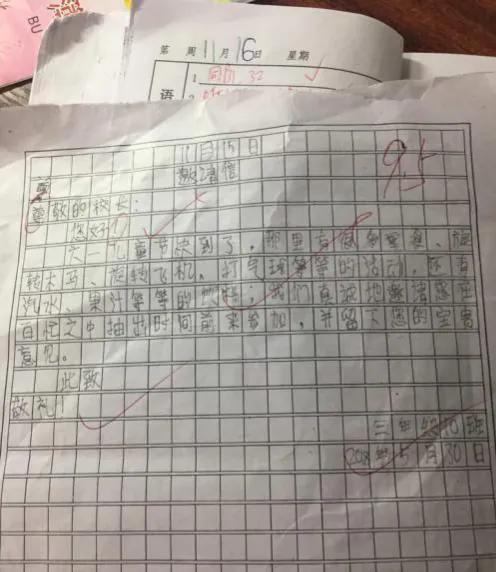 BU
第 周 11月16日 星期
1. 32
语
11月15日
邀请信
95
尊
尊敬的校长：
您好！
六一儿童节快到了，那里有很多堡垒、旋
转木马、旋转飞机、打气球等等的活动，还有
汽水、果汁等等的，我们真诚地邀请您在
百忙之中抽出时间前来参加，并留下您的宝贵
意见。
此致
敬礼！
三年级10班
5月30日